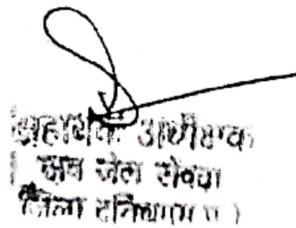 सहायक अधीक्षक
सब जेल सेवढा
जिला दतिया (म.प्र.)